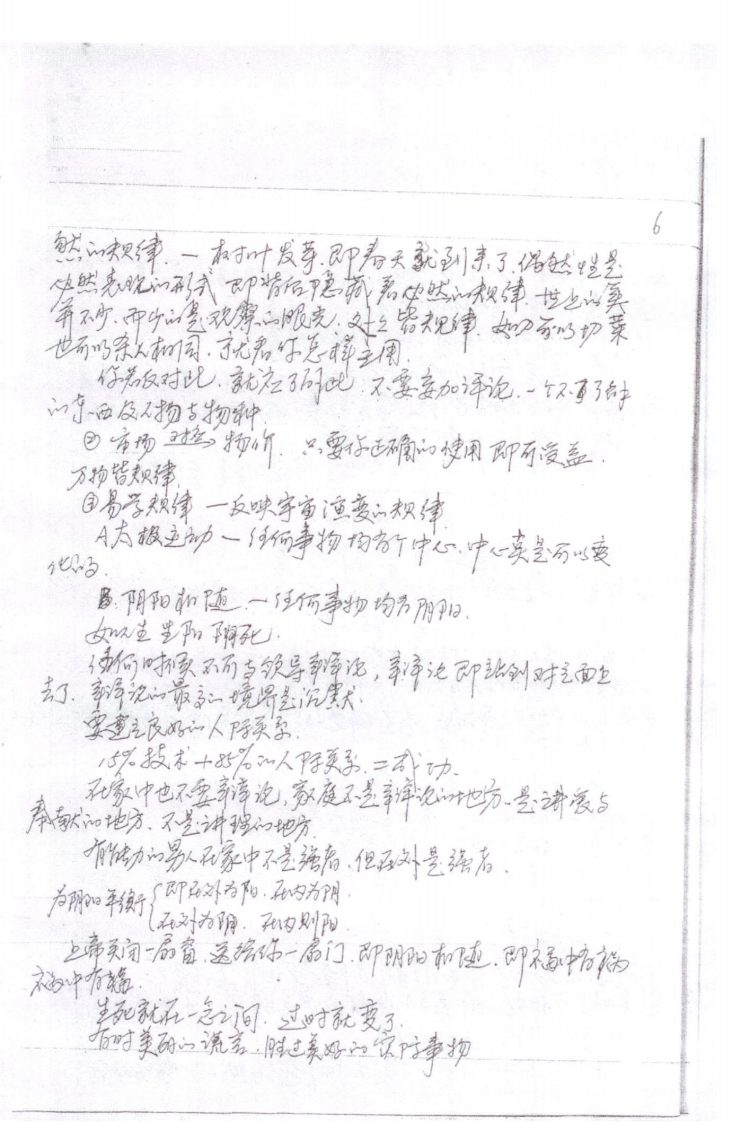 6
然的规律.一枚树叶发芽.即春天就到来了.偶然性是
必然表现的形式 即背后隐藏着必然的规律.世上的
并不少.而少的是观察的眼光.处处皆规律.如刀可以切菜
也可以杀人相同.就看你怎样运用.
你若反对此.就应了解此.不要妄加评论.一个不了解
的东西
② 市场 物价.只要你正确的使用即可受益.
万物皆规律.
③易学规律—反映宇宙演变的规律
A太极运动—任何事物均有个中心.中心真是可以变
化的.
B.阴阳相随.—任何事物均有阴阳.
如人生 生阳 阴死.
任何时候不可与领导辩论,辩论即站到对立面上
去了.辩论的最高的境界是沉默.
要建立良好的人际关系.
15%技术+85%的人际关系.=成功.
在家中也不要辩论,家庭不是辩论的地方.是讲爱与
奉献的地方.不是讲理的地方.
有能力的男人在家中不是强者.但在外是强者.
为阴阳平衡{即在外为阳.在内为阴.
在外为阴.在内则阳.
上帝关闭一扇窗.送给你一扇门.即阴阳相随.即福中有祸
祸中有福.
生死就在一念之间.过时就变了.
有时美丽的谎言.胜过美好的实际事物